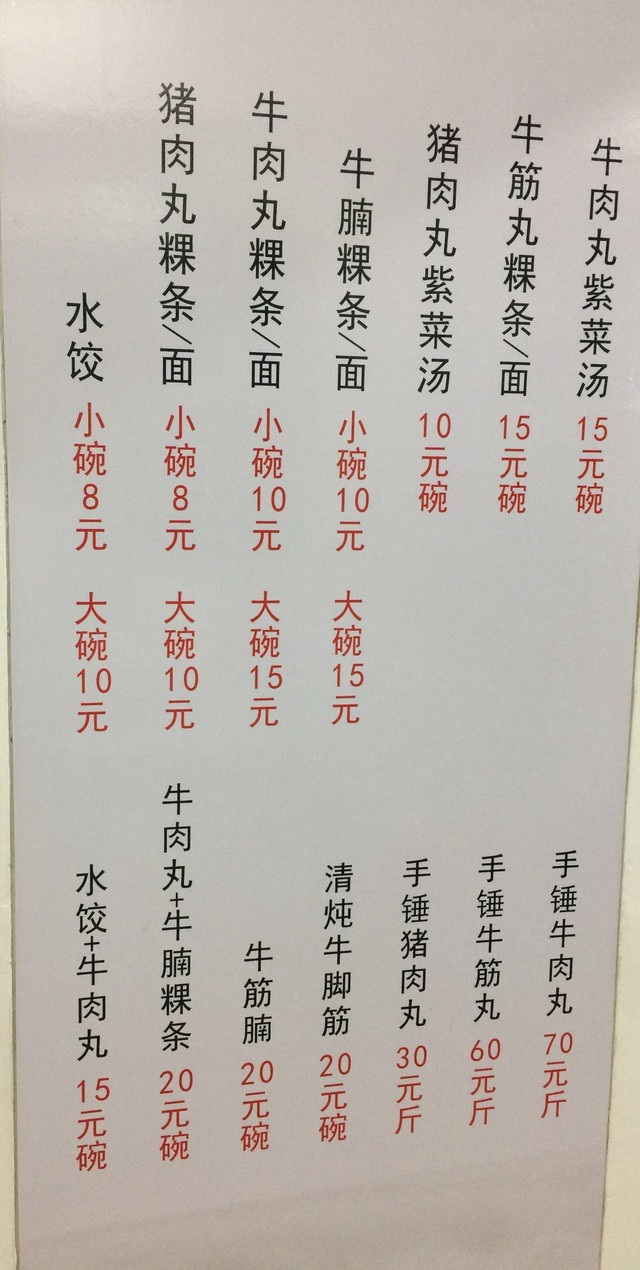 水饺 小碗8元 大碗10元
猪肉丸粿条/面 小碗8元 大碗10元
牛肉丸粿条/面 小碗10元 大碗15元
牛腩粿条/面 小碗10元 大碗15元
猪肉丸紫菜汤 10元碗
牛筋丸粿条/面 15元碗
牛肉丸紫菜汤 15元碗
水饺+牛肉丸 15元碗
牛肉丸+牛腩粿条 20元碗
牛筋腩 20元碗
清炖牛脚筋 20元碗
手锤猪肉丸 30元斤
手锤牛筋丸 60元斤
手锤牛肉丸 70元斤